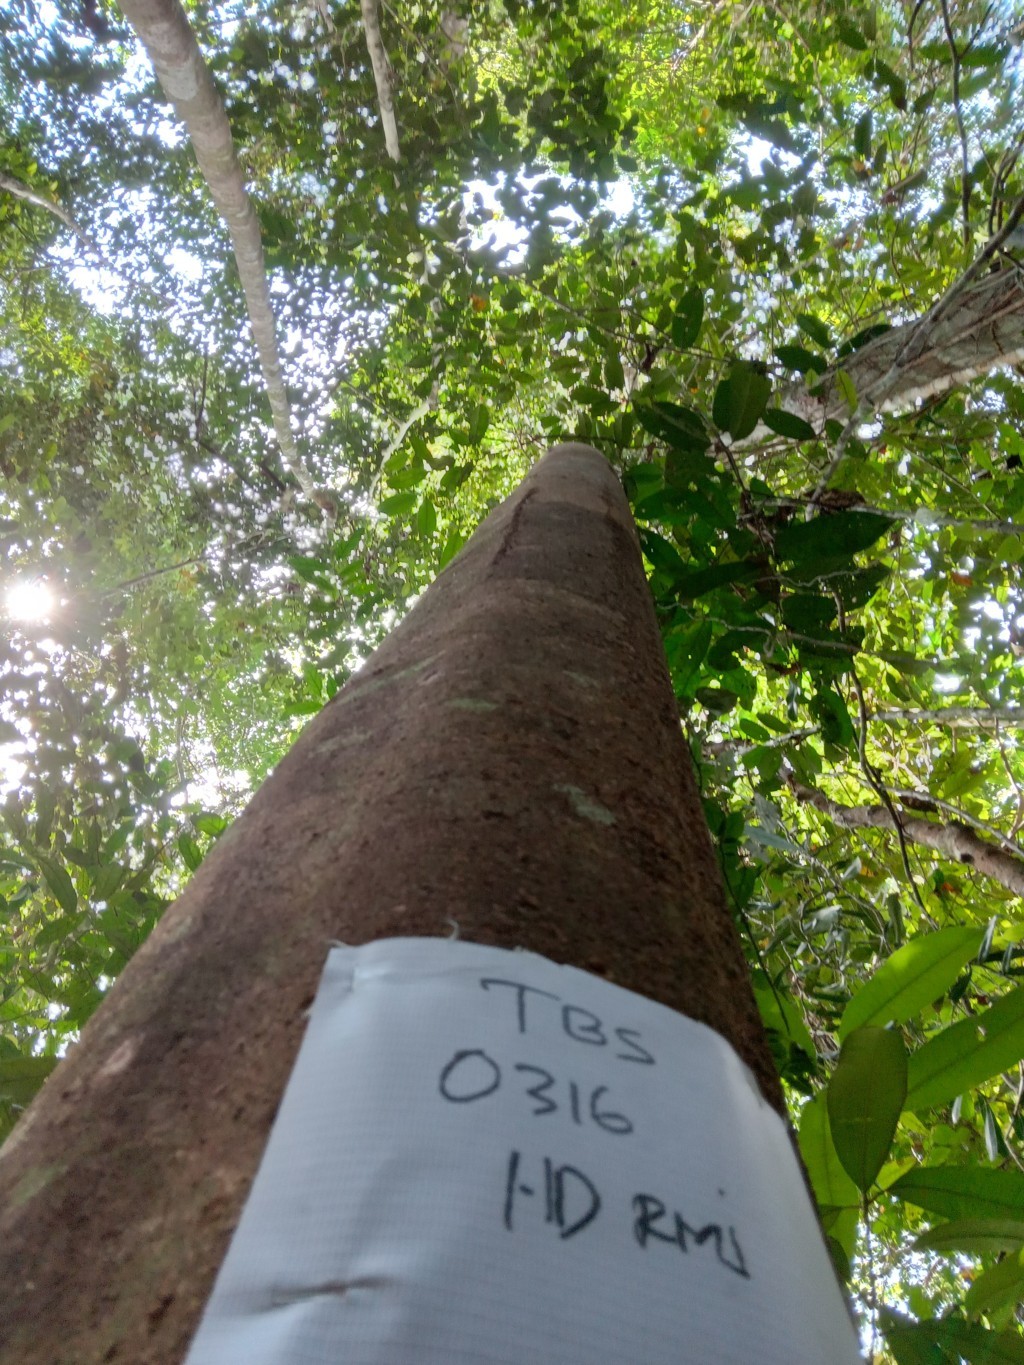 TBS
0316
HD RMJ